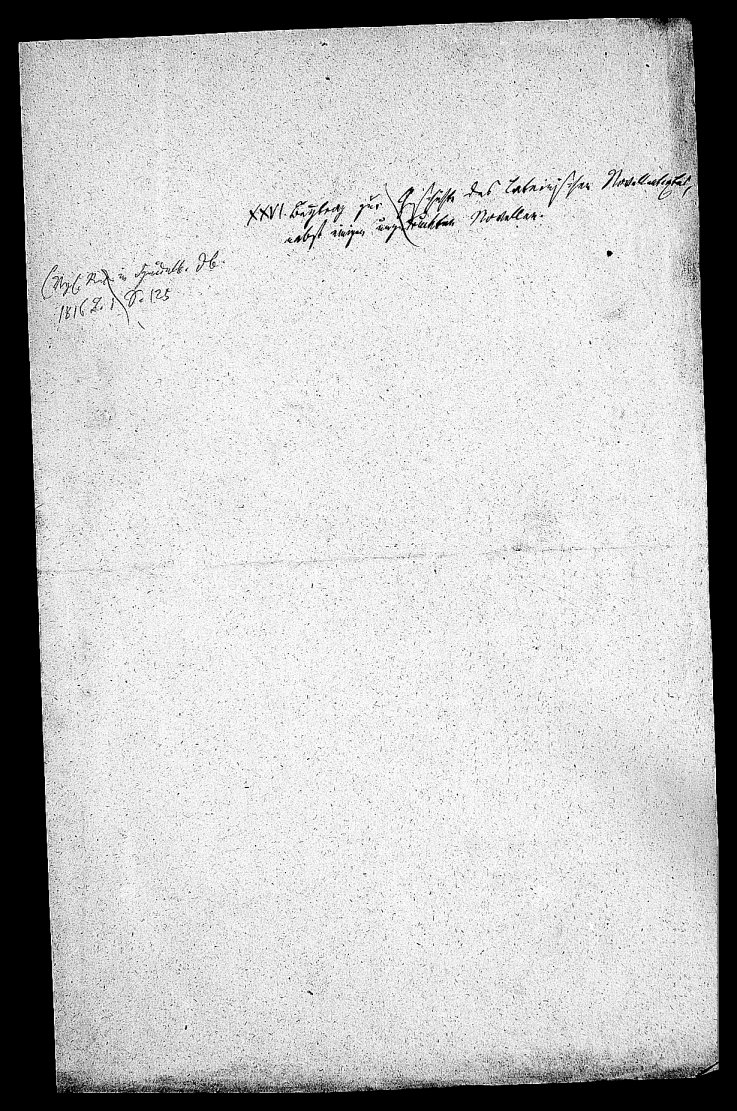 XXVI. Beytrag zur Geschichte des lateinischen Novellentextes,
nebst einigen ungedruckten Novellen.
(Vgl. Rec. in Heidelb. Jb.
1816 2. 1 S. 125